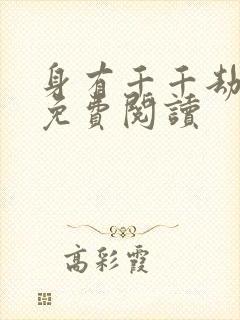 身有千千劫
免費閱讀
高彩霞